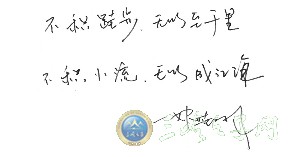 不积跬步,无以至千里
不积小流,无以成江海